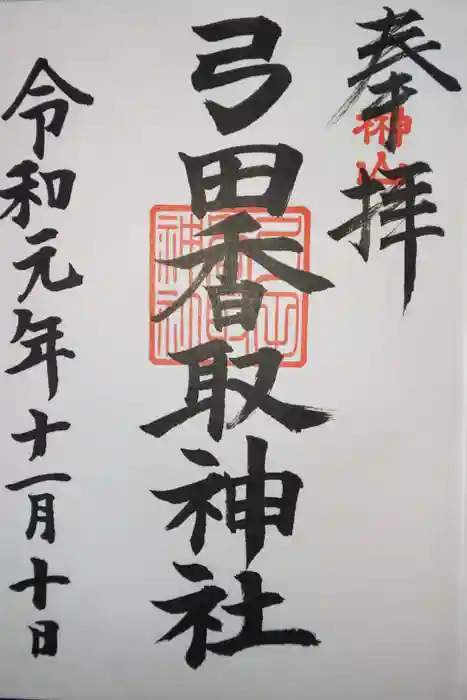 奉拝
弓田香取神社
令和元年十一月十日